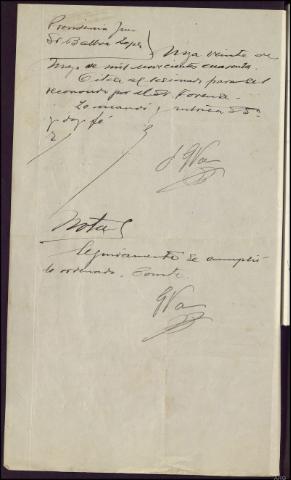 Providencia Juez
Sr Balboa Lopez } Mya veinte de
Mayo de mil novecientos cuarenta.
Citese al lesionado para ser
reconocido por el Sr Forense.
Lo mandó y rubrica SSª
y doy fé
Nota
Seguidamente se cumplió
lo ordenado. Conste.